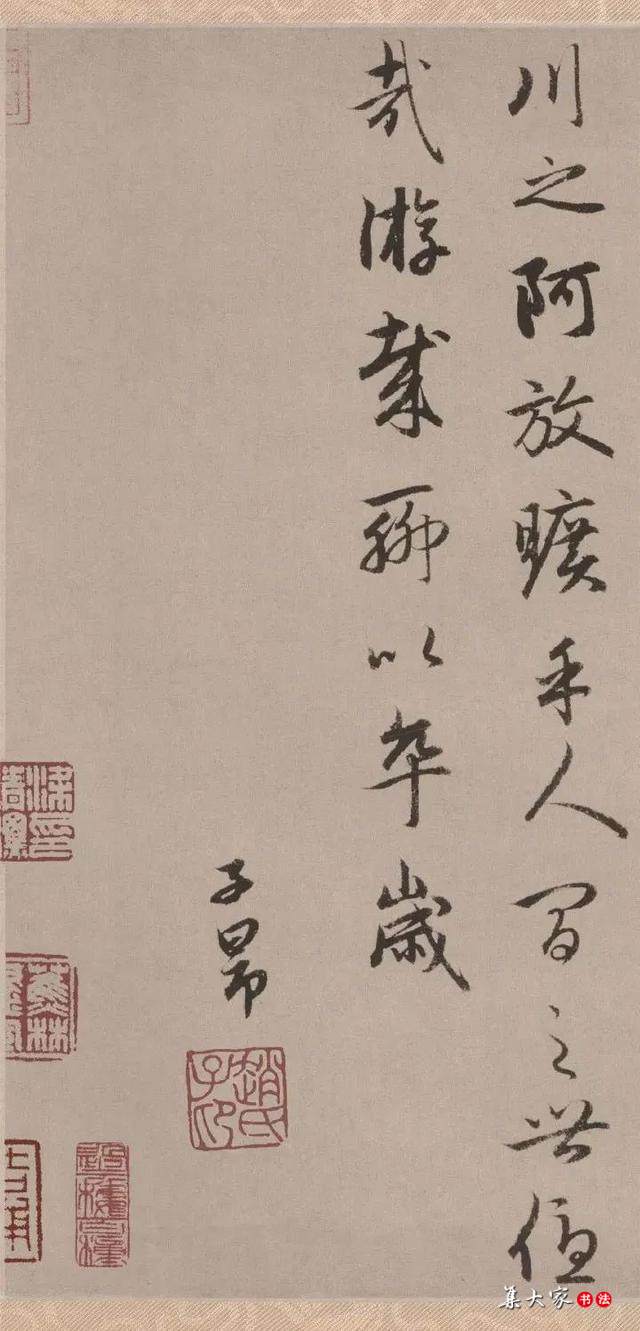 川之阿放曠乎人間之世優
哉游哉聊以卒歲
子昂
趙氏子昂
蕉林
集大家书法